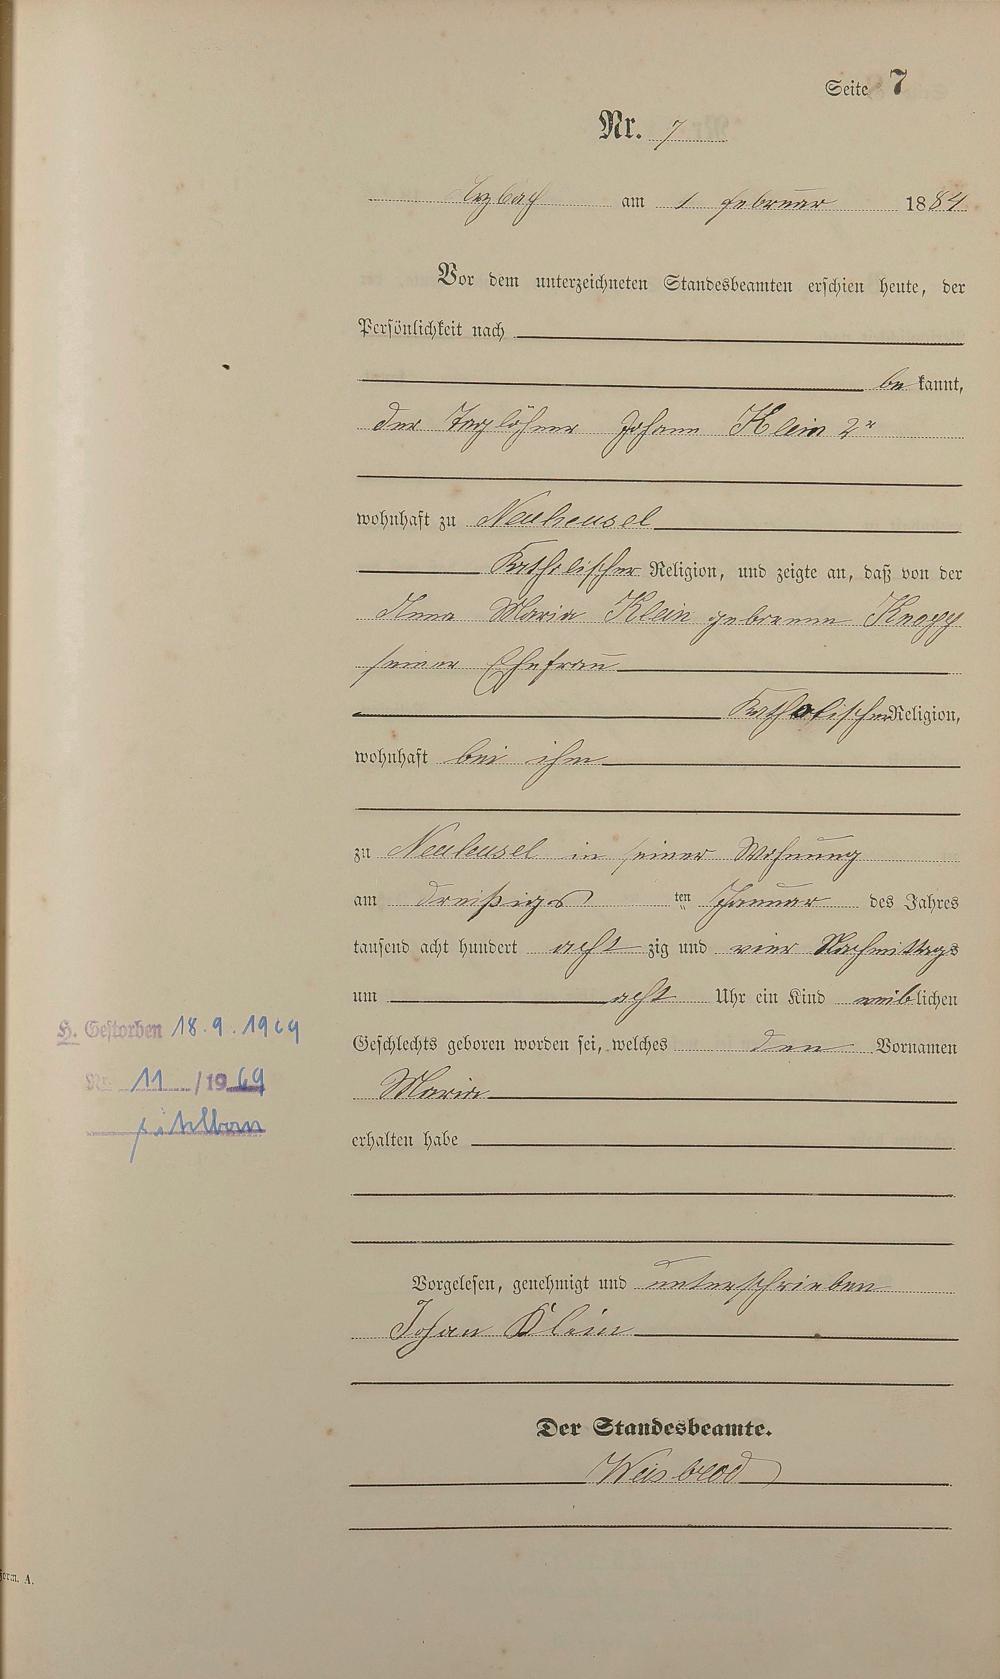 Seite 7
Nr. 7
Arzbach am 1 Februar 1884
Vor dem unterzeichneten Standesbeamten erschien heute, der
Persönlichkeit nach
be kannt,
der Taglöhner Johann Klein 2r
wohnhaft zu Neuheusel
Katholischer Religion, und zeigte an, daß von der
Anna Maria Klein geborenen Knopp
seiner Ehefrau
Katholischer Religion,
wohnhaft bei ihm
zu Neuheusel in seiner Wohnung
am dreißigs ten Januar des Jahres
tausend acht hundert acht zig und vier Nachmittags
um acht Uhr ein Kind weiblichen
Geschlechts geboren worden sei, welches den Vornamen
Maria
erhalten habe
H. Gestorben 18.9.1969
Nr. 11 /1969
Vorgelesen, genehmigt und unterschrieben
Johan Klein
Der Standesbeamte.
Weisbrod
Form. A.